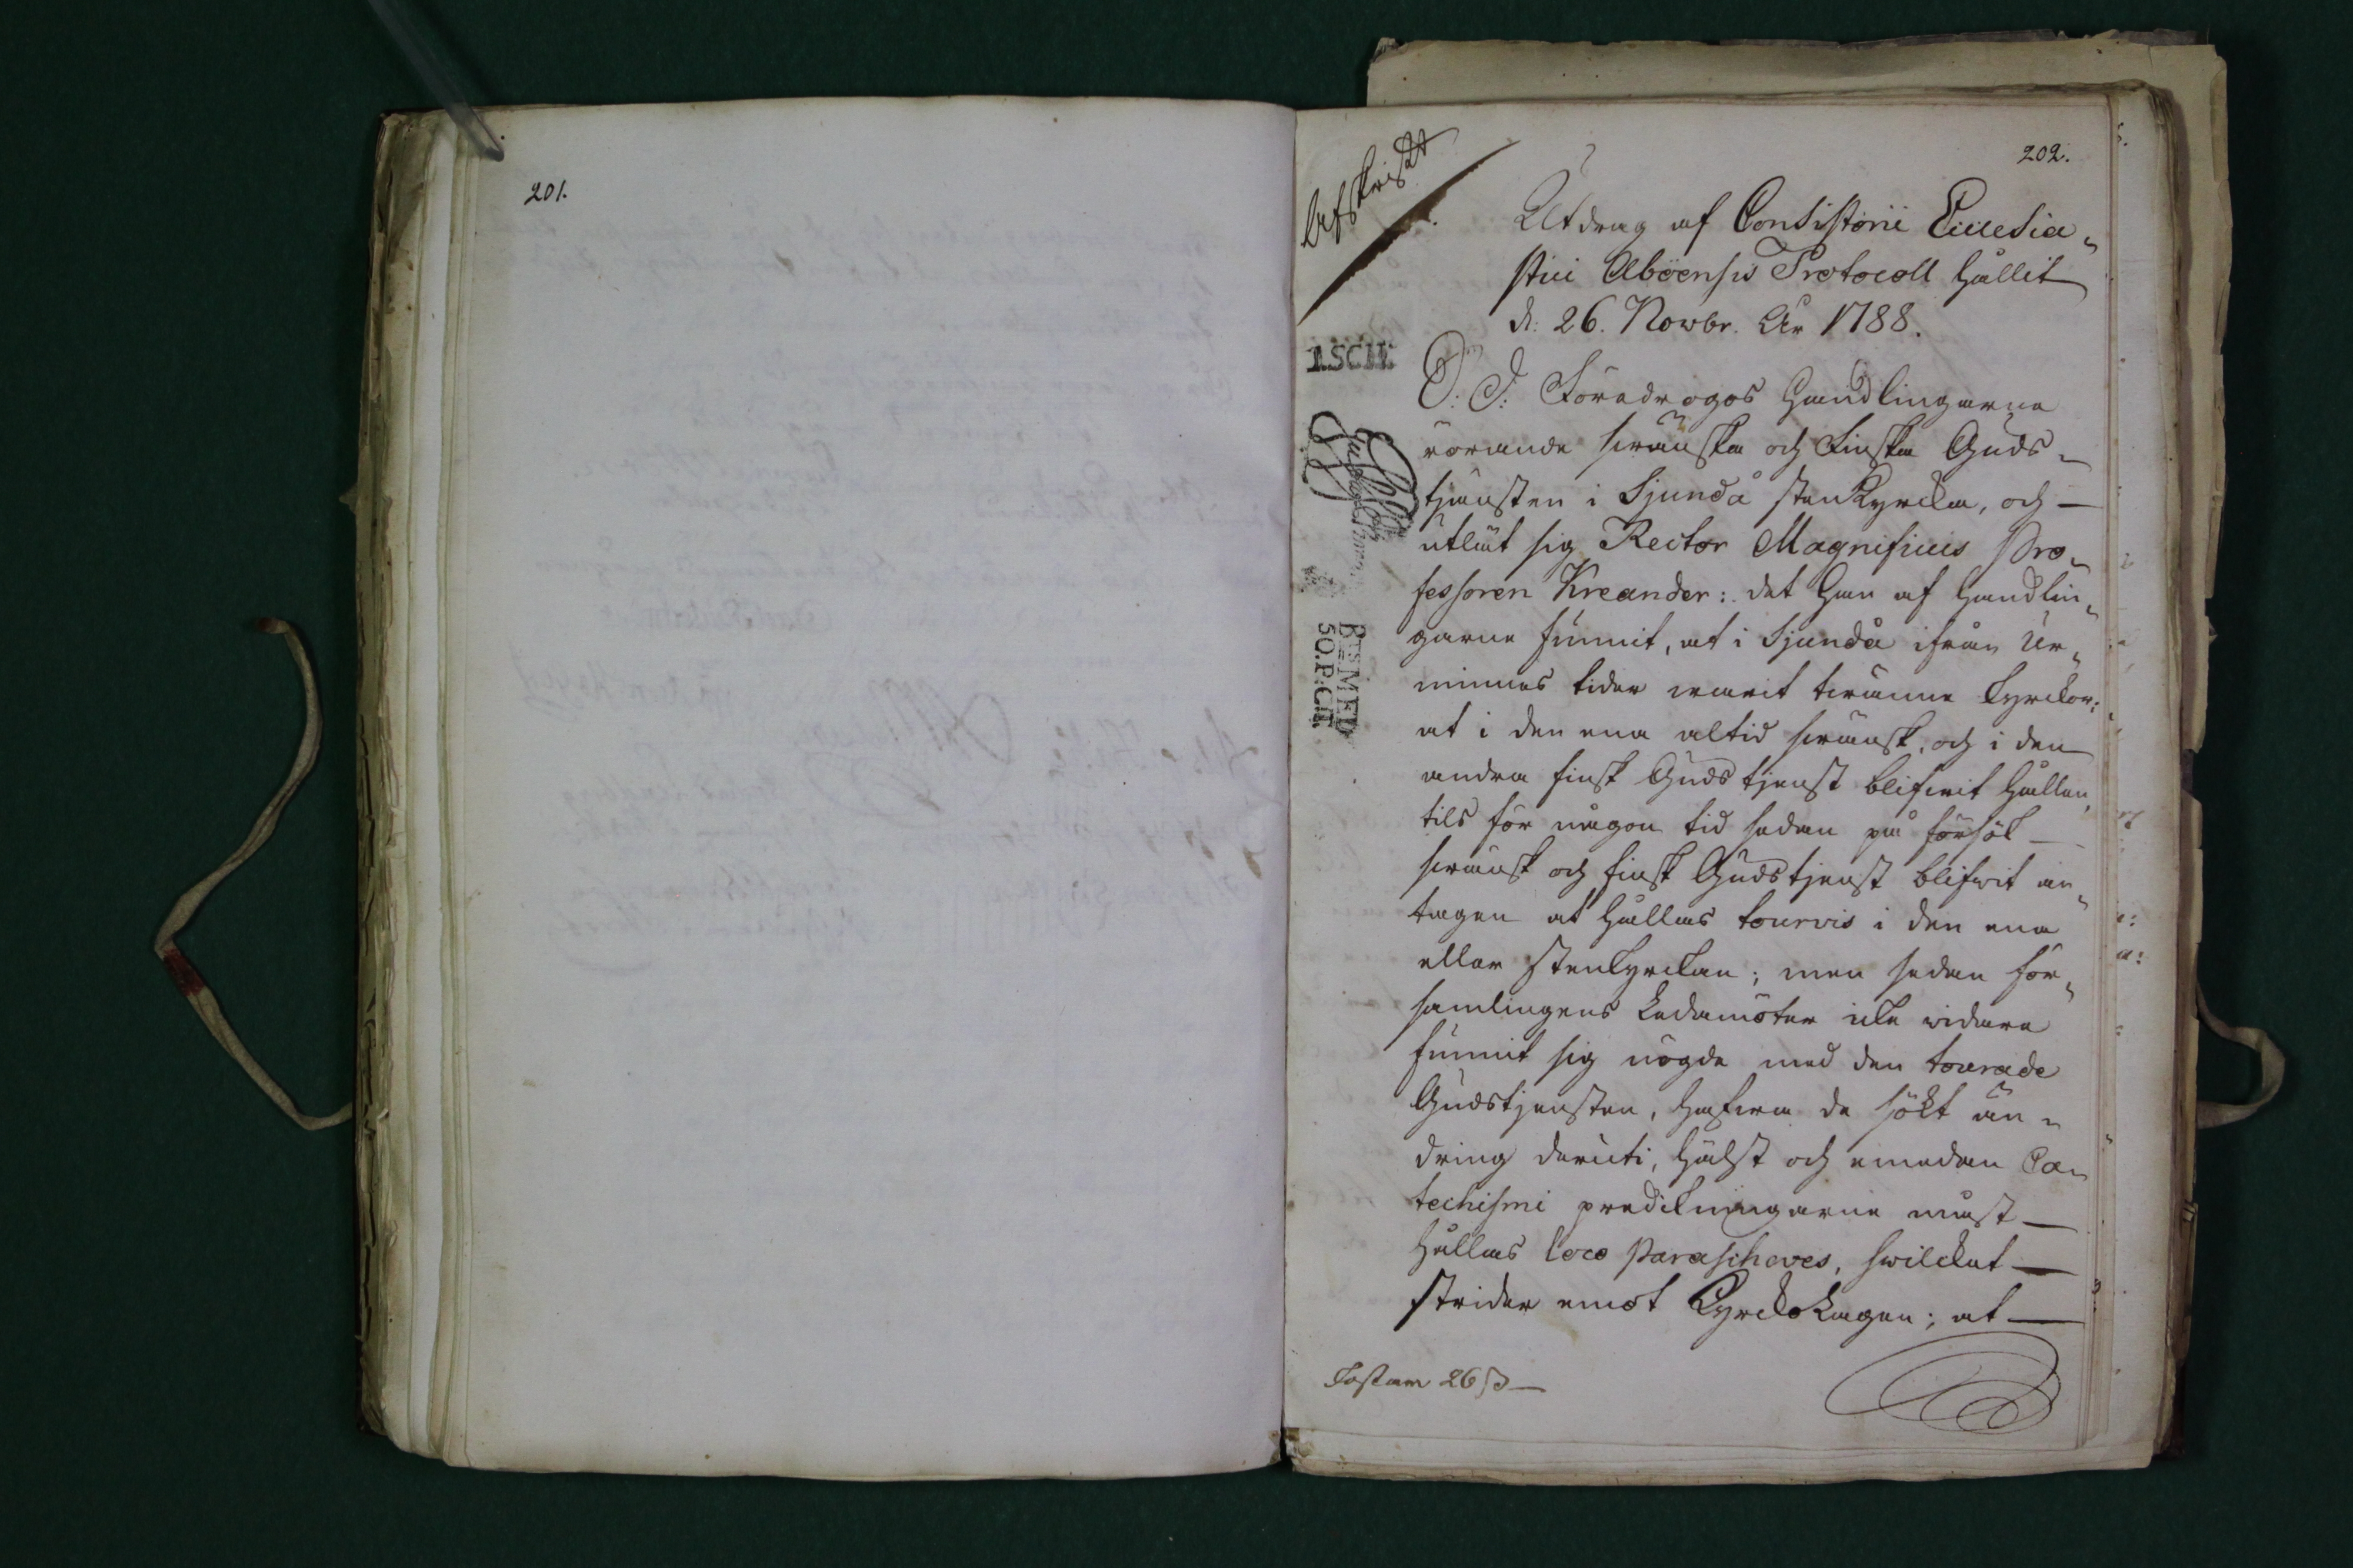 201.
202.
Afskrift
Utdrag af Consistorii Ecclesia„
stici Aboensis Protocoll hållit
d: 26. Novbr. År 1788.
1.SCH:
S: D: Föredrogos Handlingarne
rörande swänska och Finska Guds„
tjensten i Sjundå stenkyrcka, och
utlät sig Rector Magnificus Pro„
fessoren Kreander: det Han af Handlin„
garne funnit, at i Sjundå ifrån Ur„
minnes tider warit twänne kyrckor:
at i den ena altid swänsk, och i den
andra finsk Gudstjenst blifwit hållen,
tils för någon tid sedan på försök
swänsk och finsk Gudstjenst blifwit an„
tagen at hållas tourvis i den ena
eller stenkyrckan; men sedan för„
samlingens Ledamöter icke widare
funnit sig nögde med den tourade
Gudstjensten, hafwa de sökt än„
dring deruti, hälst och emedan Ca„
techismi predikningarne måst
hållas loco Parascheves, hwilcket
strider emot Kyrcko Lagen; at
BTS MED
50.P:CT.
Costam 26 ß